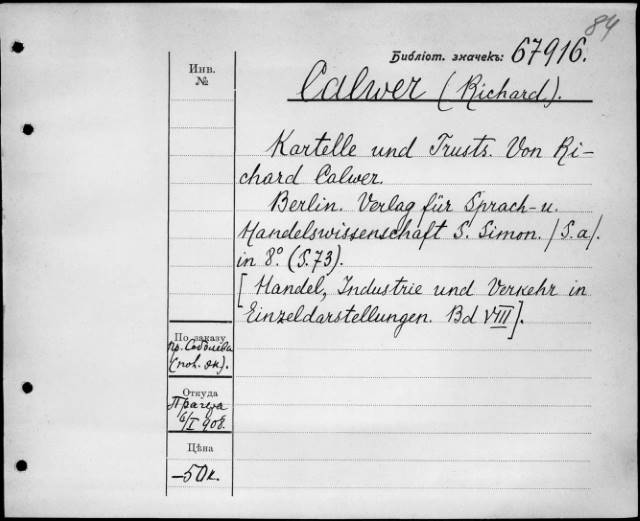 84
Библіот. значекъ: 67916.
Инв.
№
Calwer (Richard).
Kartelle und Trusts. Von Ri-
chard Calwer.
Berlin. Verlag für Sprach- u.
Handelswissenschaft S. Simon. /S.a/.
in 8º. (S. 73).
[Handel, Industrie und Verkehr in
Einzeldarstellungen. Bd VIII].
По заказу
пр. Соболева
(пол. эк).
Откуда
Прагера
6/I 908.
Цѣна
–50к.